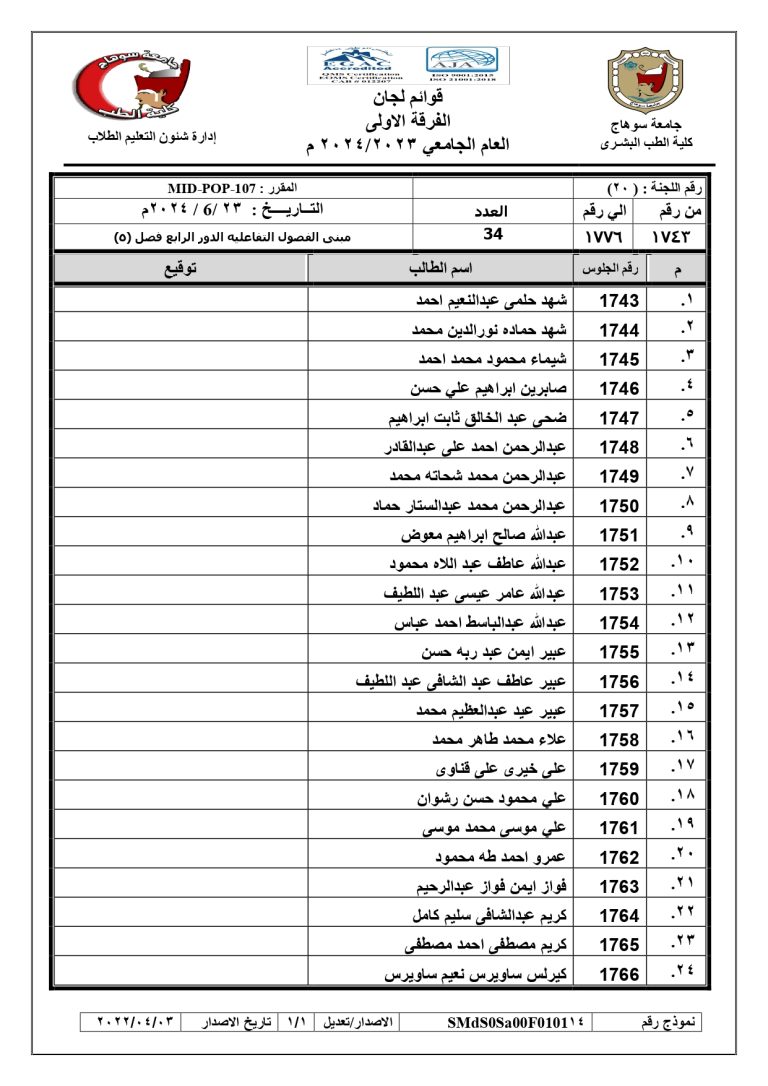 جامعة سوهاج
كلية الطب
EGAC
Accredited
QMS Certification
EOMS Certification
CAB # 012207
AJA
ISO 9001:2015
ISO 21001:2018
جامعة سوهاج
كلية الطب البشرى
قوائم لجان
الفرقة الاولى
العام الجامعي ٢٠٢٤/٢٠٢٣ م
إدارة شئون التعليم الطلاب
رقم اللجنة : (٢٠) المقرر : MID-POP-107
من رقم الي رقم العدد التــاريـــخ : ٢٣ /6 / ٢٠٢٤م
١٧٤٣ ١٧٧٦ 34 مبنى الفصول التفاعليه الدور الرابع فصل (٥)
م رقم الجلوس اسم الطالب توقيع
١. 1743 شهد حلمى عبدالنعيم احمد
٢. 1744 شهد حماده نورالدين محمد
٣. 1745 شيماء محمود محمد احمد
٤. 1746 صابرين ابراهيم علي حسن
٥. 1747 ضحى عبد الخالق ثابت ابراهيم
٦. 1748 عبدالرحمن احمد على عبدالقادر
٧. 1749 عبدالرحمن محمد شحاته محمد
٨. 1750 عبدالرحمن محمد عبدالستار حماد
٩. 1751 عبدالله صالح ابراهيم معوض
١٠. 1752 عبدالله عاطف عبد اللاه محمود
١١. 1753 عبدالله عامر عيسى عبد اللطيف
١٢. 1754 عبدالله عبدالباسط احمد عباس
١٣. 1755 عبير ايمن عبد ربه حسن
١٤. 1756 عبير عاطف عبد الشافى عبد اللطيف
١٥. 1757 عبير عيد عبدالعظيم محمد
١٦. 1758 علاء محمد طاهر محمد
١٧. 1759 على خيرى على قناوى
١٨. 1760 علي محمود حسن رشوان
١٩. 1761 علي موسى محمد موسى
٢٠. 1762 عمرو احمد طه محمود
٢١. 1763 فواز ايمن فواز عبدالرحيم
٢٢. 1764 كريم عبدالشافى سليم كامل
٢٣. 1765 كريم مصطفى احمد مصطفى
٢٤. 1766 كيرلس ساويرس نعيم ساويرس
نموذج رقم SMdS0Sa00F0101١٤ الاصدار/تعديل ١/١ تاريخ الاصدار ٢٠٢٢/٠٤/٠٣